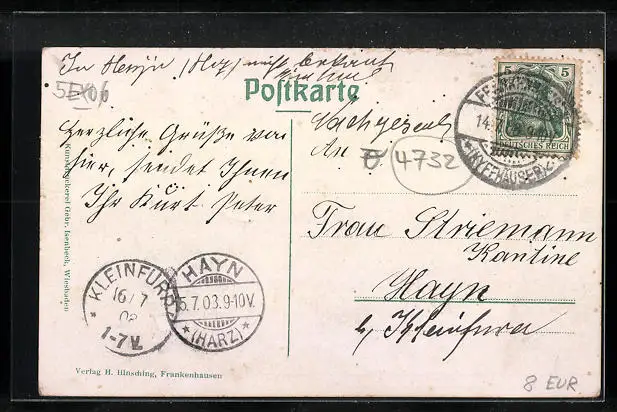 In Hayn (Harz) nicht bekannt
5 Ex06
Postkarte
5 5
DEUTSCHES REICH
FRANKENHAUSEN
14.7.
(KYFFHÄUSER)
Herzliche Grüße von
hier, sendet Ihnen
Ihr Kurt Peter
An
4732
Frau Striemann
Kantine
Hayn
b/ Kleinfurra
KLEINFURRA
16/7
03
1-7V.
HAYN
15.7.03.9-10V.
(HARZ)
Kunstdruckerei Gebr. Isenbeck, Wiesbaden
Verlag H. Hinsching, Frankenhausen
8 EUR